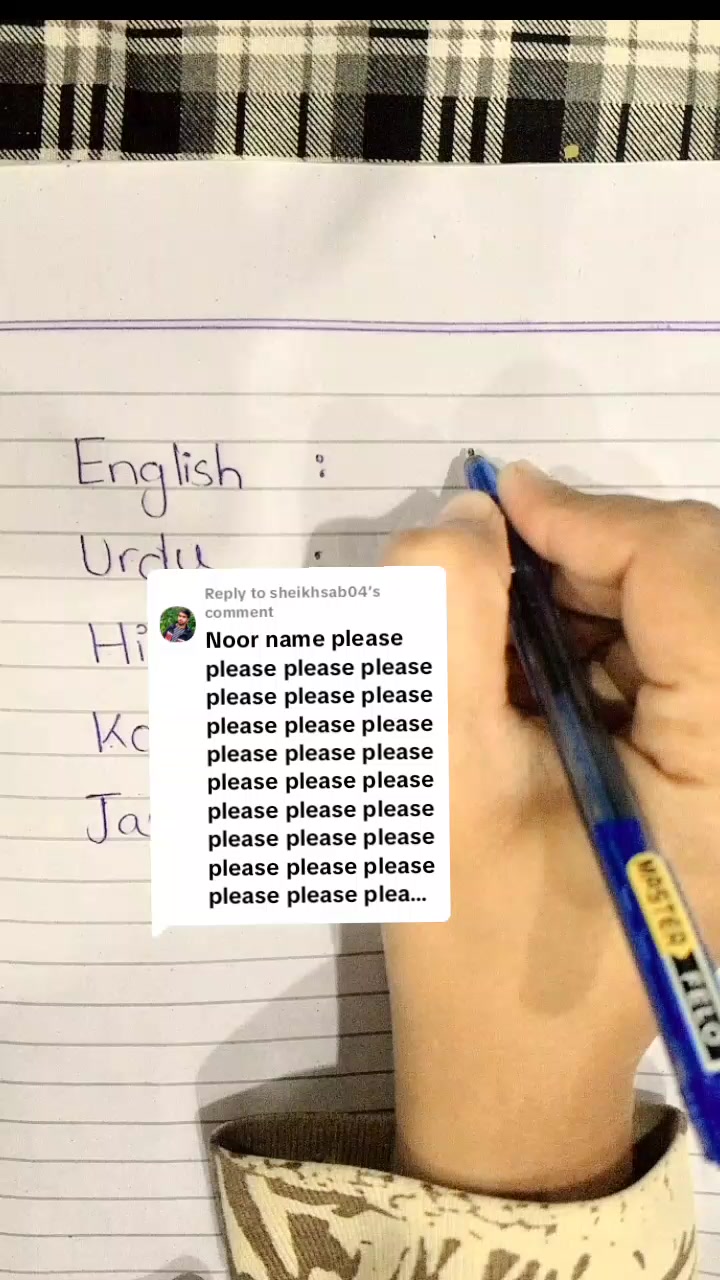 English :
Urdu :
Hi
Ko
Ja
Reply to sheikhsab04's
comment
Noor name please
please please please
please please please
please please please
please please please
please please please
please please please
please please please
please please please
please please plea...
MASTER